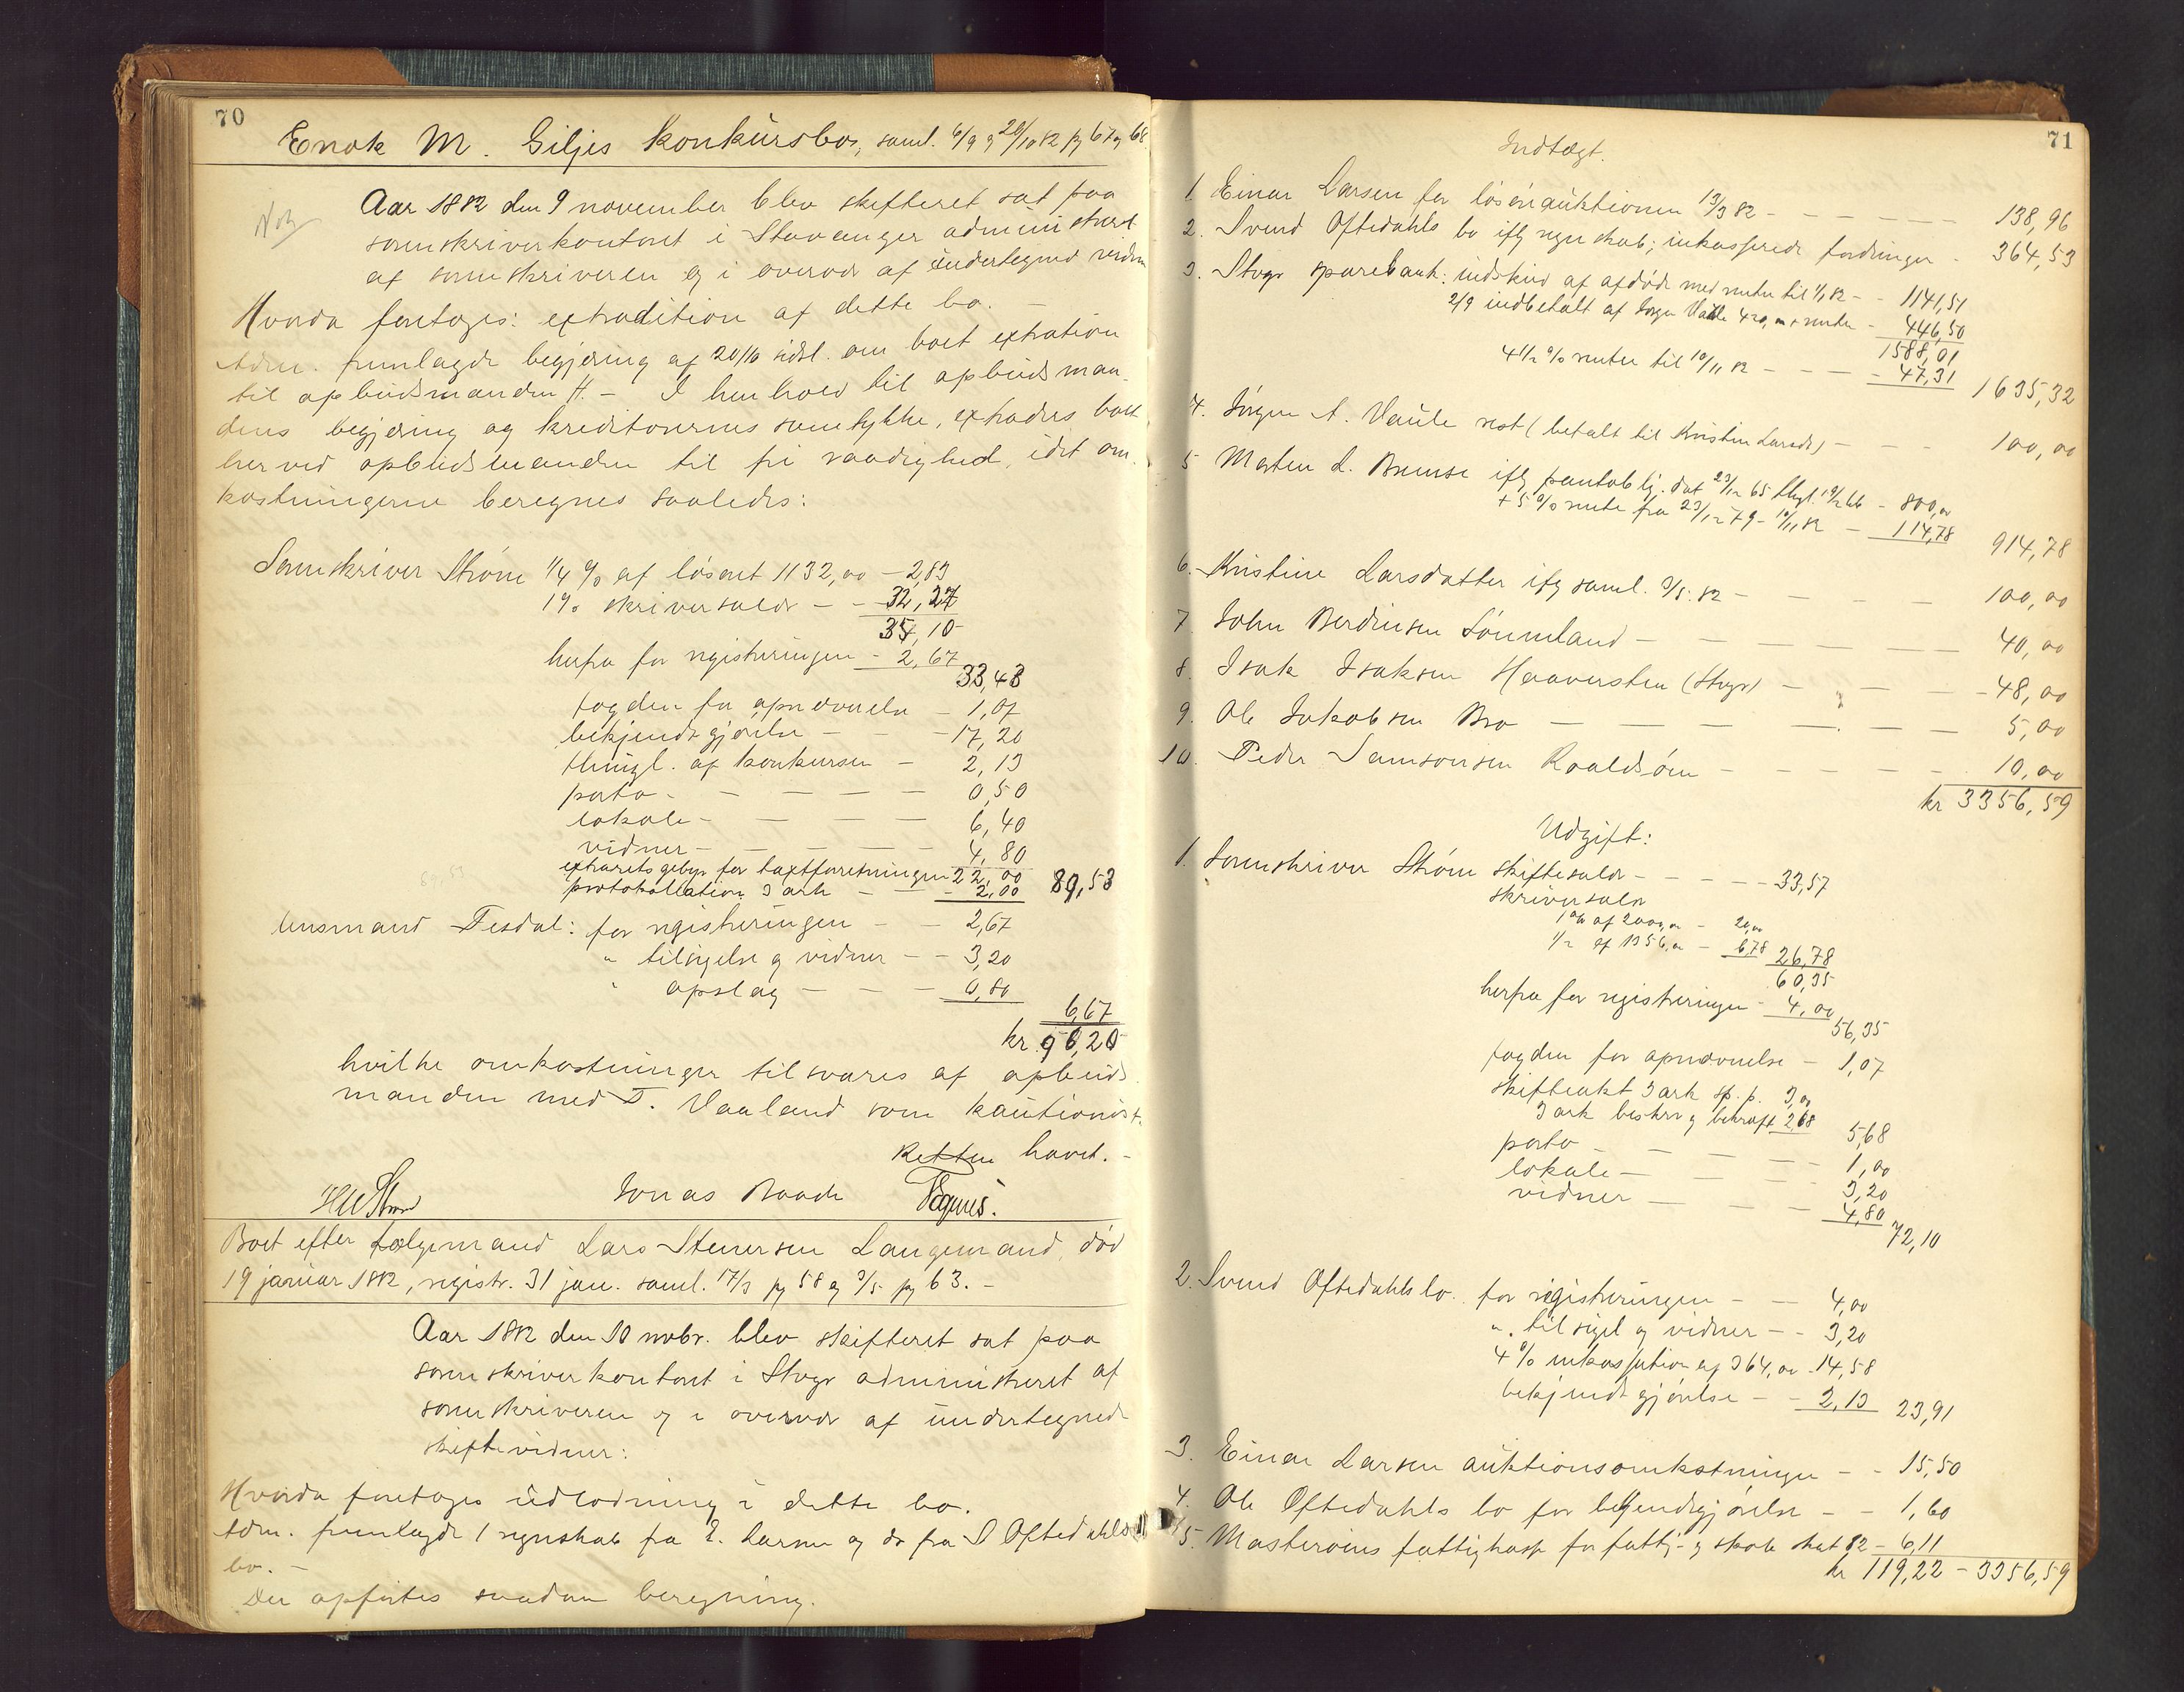 70
Enok M. Giljes konkursbo, saml. 6/9 og 20/10 82 pg 67 og 68
Aar 1882 den 9 november blev skifteret sat paa
sorenskriverkontoret i Stavanger administreret
af sorenskriveren og i overvær af undertegnede vidner
Hvorda foretoges: extradition af dette bo. —
Adm. fremlagde begjæring af 20/10 sidstl. om boet extration
til opbudsmanden #. — I henhold til opbudsman-
dens begjæring og kreditorernes samtykke, extraderes boet
herved opbudsmanden til fri raadighed, idet om-
kostningerne beregnes saaledes:
Sorenskriver Strøm 1/4 % af løsøret 1132,00 — 2,83
1% skriversalær — — 32,27
35,10
herfra for registreringen - 2,67
33,43
fogden for opnævnelse — 1,07
bekjendtgjørelse — — 17,20
thingl. af konkursen — 2,13
porto — — — — 0,50
lokale — — — — 6,40
vidner — — — — 4,80
extraretsgebyr for taxtforretningen 22,00
protokollation 3 ark — — 2,00 89,53
lensmand Tesdal: for registreringen — — 2,67
" tilsigelse og vidner — — 3,20
" opslag — — — 0,80
6,67
kr. 96,20
hvilke omkostninger tilsvares af opbuds-
manden med T. Vaaland som kautionist.
Retten hævet. —
HWStrøm Jonas Baade
Boet efter følgemand Lars Stenersen Langemand, død
19 januar 1882, registr. 31 jan. saml. 17/3 pg 58 og 3/5 pg 63. —
Aar 1882 den 10 novbr. blev skifteret sat paa
sorenskriverkontoret i Stvgr administreret af
sorenskriveren og i overvær af undertegnede
skiftevidner:
Hvorda foretoges udlodning i dette bo.
Adm. fremlagde 1 regnskab fra E. Larsen og do fra S Oftedahls
bo. —
Der opførtes saadan beregning.
71
Indtægt.
1. Einar Larsen for løsøreauktionen 13/3 82 — — — — — — 138,96
2. Svend Oftedahls bo iflg regnskab; inkasserede fordringer - 364,53
3. Stvgr sparebank: indskud af afdøde med renter til 1/1 82 — - 1141,51
2/9 indbetalt af Jørgen Vaule 420,00 + renter — 446,50
1588,01
4 1/2 % renter til 10/11 82 — — — - 47,31 1635,32
4. Jørgen A. Vaule rest (betalt til Kristine Larsd.) — — — 100,00
5 Morten L. Bremse iflg pantoblig. dat 23/12 65 thgl. 19/2 66 - 800,00
+ 5 % rente fra 23/12 79 - 10/11 82 — 114,78
914,78
6. Kristine Larsdatter iflg saml. 3/5. 82 — — — — 100,00
7. John Berdinsen Sønmland — — — — — — 40,00
8. Isak Isaksen Haaversten (Stvgr) — — — — - 48,00
9. Ole Jakobsen Bro — — — — — — — 5,00
10. Peder Samsonsen Roaldsøen — — — — — 10,00
kr 3356,59
Udgift:
1. Sorenskriver Strøm skiftesalær — — — — — 33,57
skriversalær
1% af 2000,00 — 20,00
1/2 af 1356,00 — 6,78 26,78
60,35
herfra for registreringen — 4,00
56,35
fogden for opnævnelse — 1,07
skifteakt 3 ark sp. p. 3,00
3 ark beskr og bekræft 2,68 5,68
porto — — — — 1,00
lokale — — — — 3,20
vidner — — — 4,80
72,10
2. Svend Oftedahls bo. for registreringen — — 4,00
". tilsigel og vidner — - 3,20
4 % inkassation af 364,00 - 14,58
bekjendtgjørelse — - 2,13 23,91
3 Einar Larsen auktionsomkostninger — - 15,50
4. Ole Oftedahls bo for bekjendtgjørelse — — 1,60
5. Mosterøens fattigkasse for fattig- og skole skat 82 — 6,11
kr 119,22 — 3356,59